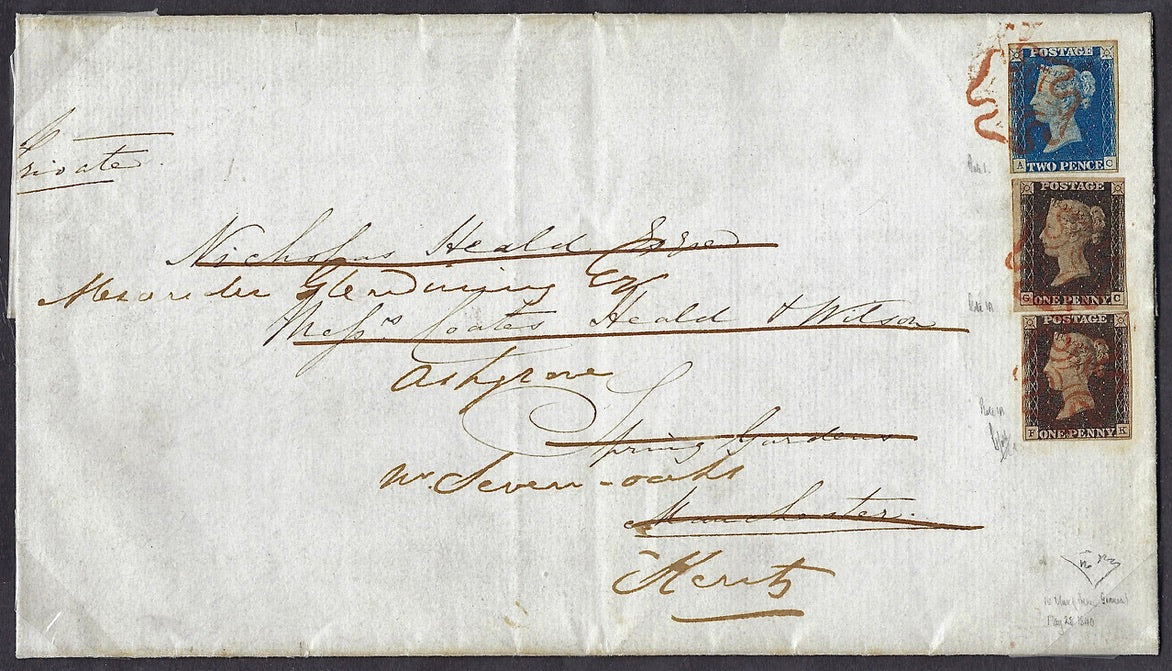 Private
Nicholas Heald Esqre
Alexander Glendinning Esq
Messrs Coates Heald & Wilson
Ashgrove
Spring Gardens
Nr. Seven-oaks
Manchester.
Kent
POSTAGE
A TWO PENCE C
POSTAGE
G ONE PENNY C
POSTAGE
F ONE PENNY K
Plate 1.
May 22 1840